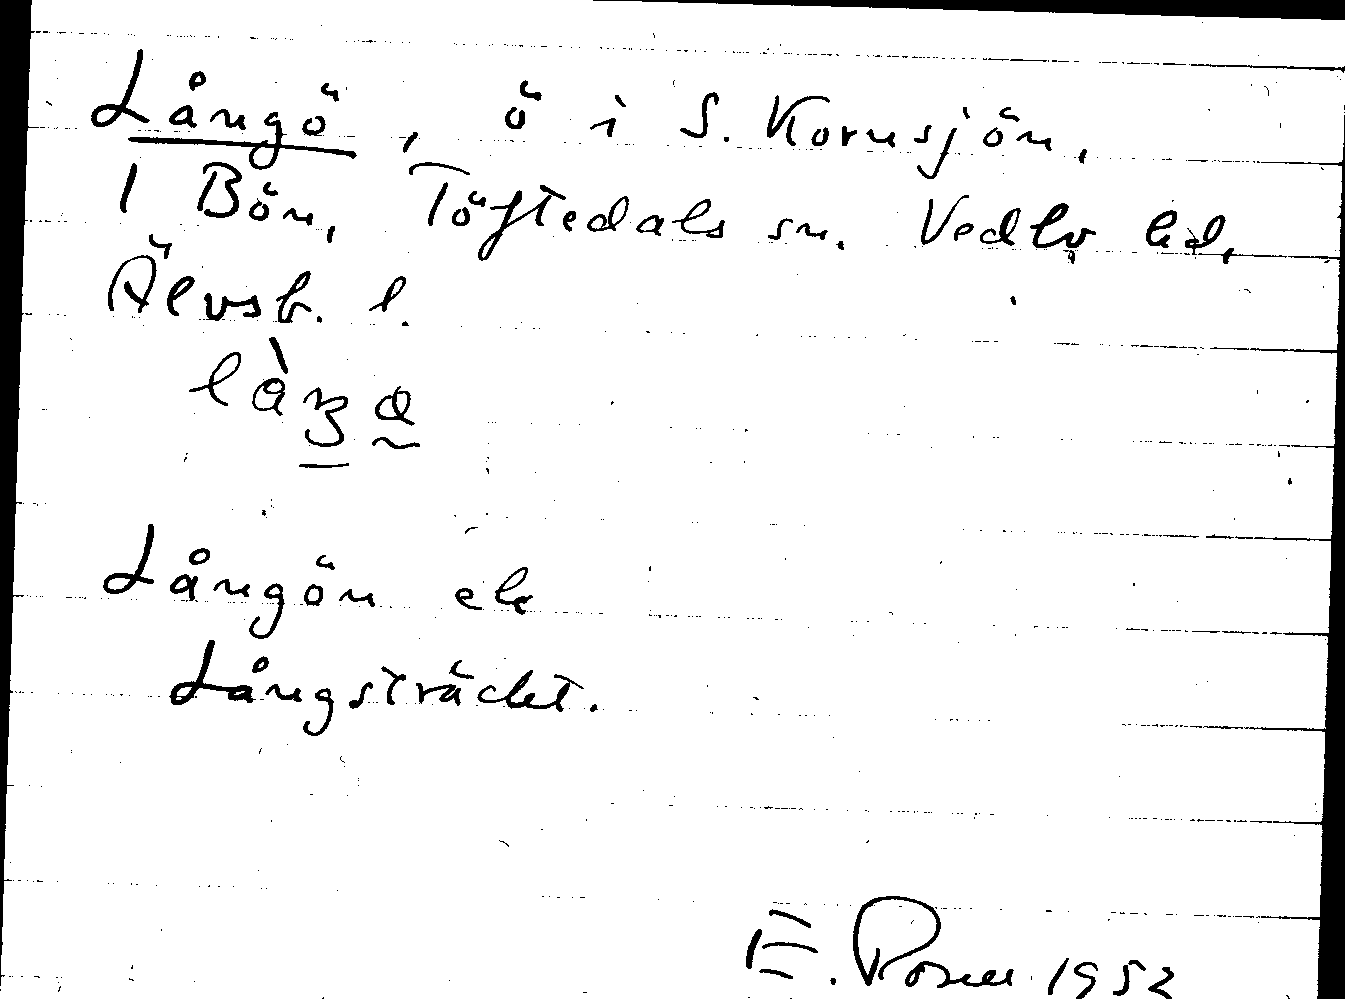 Långö, ö i S. Kornsjön,
1 Bön, Töftedals sn. Vedbo hd,
Älvsb. l.
Långön el
Långsträcket.
E. Rosell 1952